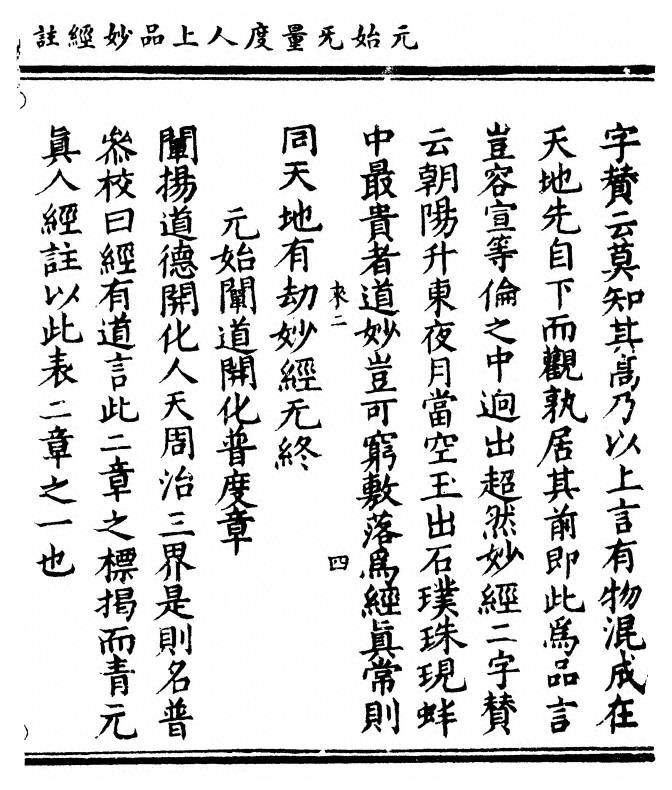 元始旡量度人上品妙經註
字贊云莫知其高乃以上言有物混成在
天地先自下而觀孰居其前即此爲品言
豈容宣等倫之中逈出超然妙經二字贊
云朝陽升東夜月當空玉出石璞珠現蚌
中最貴者道妙豈可窮敷落爲經眞常則
來二
四
同天地有劫妙經无終
元始闡道開化普度章
闡揚道德開化人天周治三界是則名普
叅校曰經有道言此二章之標揭而青元
眞人經註以此表二章之一也